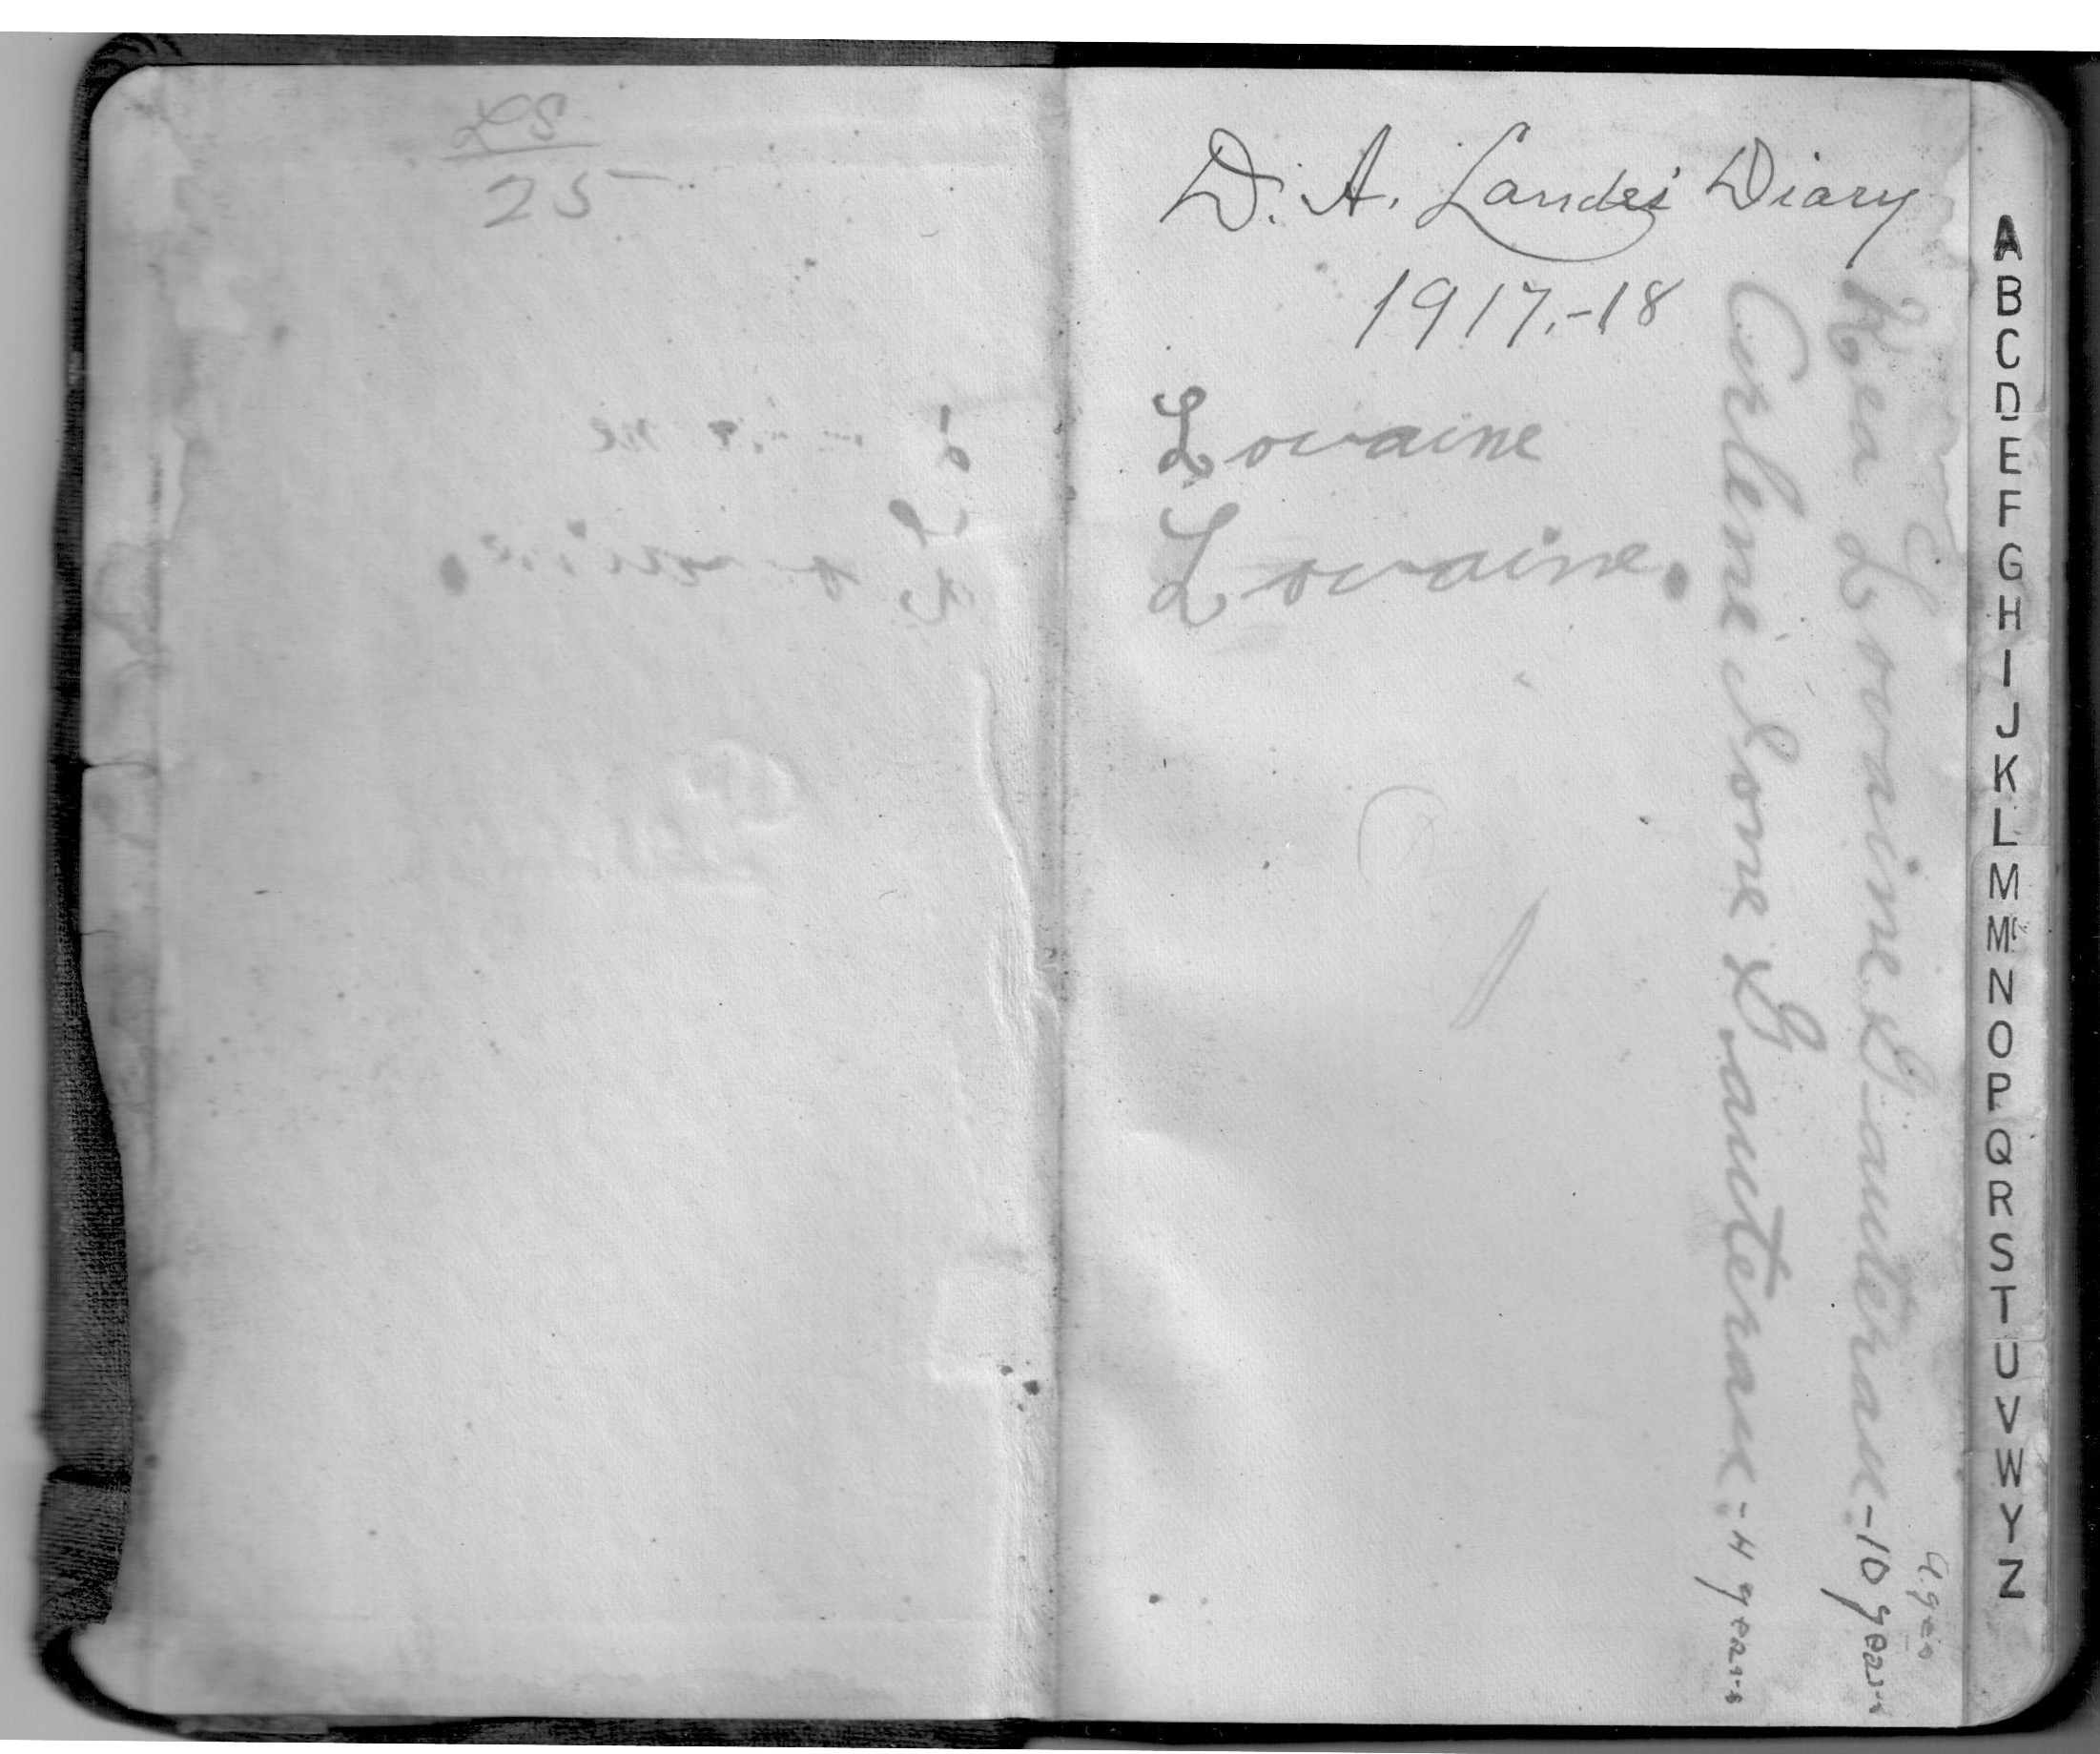 LS
25
D. A. Landes Diary
1917.-18
Lovaine
Lovaine.
Rea Lovaine Gauterau - 10 years
Arlene Ione Gauterau - 4 years
ages
A
B
C
D
E
F
G
H
I
J
K
L
M
Mc
N
O
P
Q
R
S
T
U
V
W
Y
Z